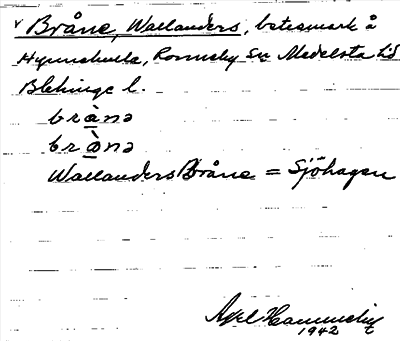 v Bråne, Wallanders, betesmark å
Hynnekulla, Ronneby Sn Medelsta hd
Blekinge l.
brànə
brànə
Wallanders Bråne = Sjöhagen
Axel
1942